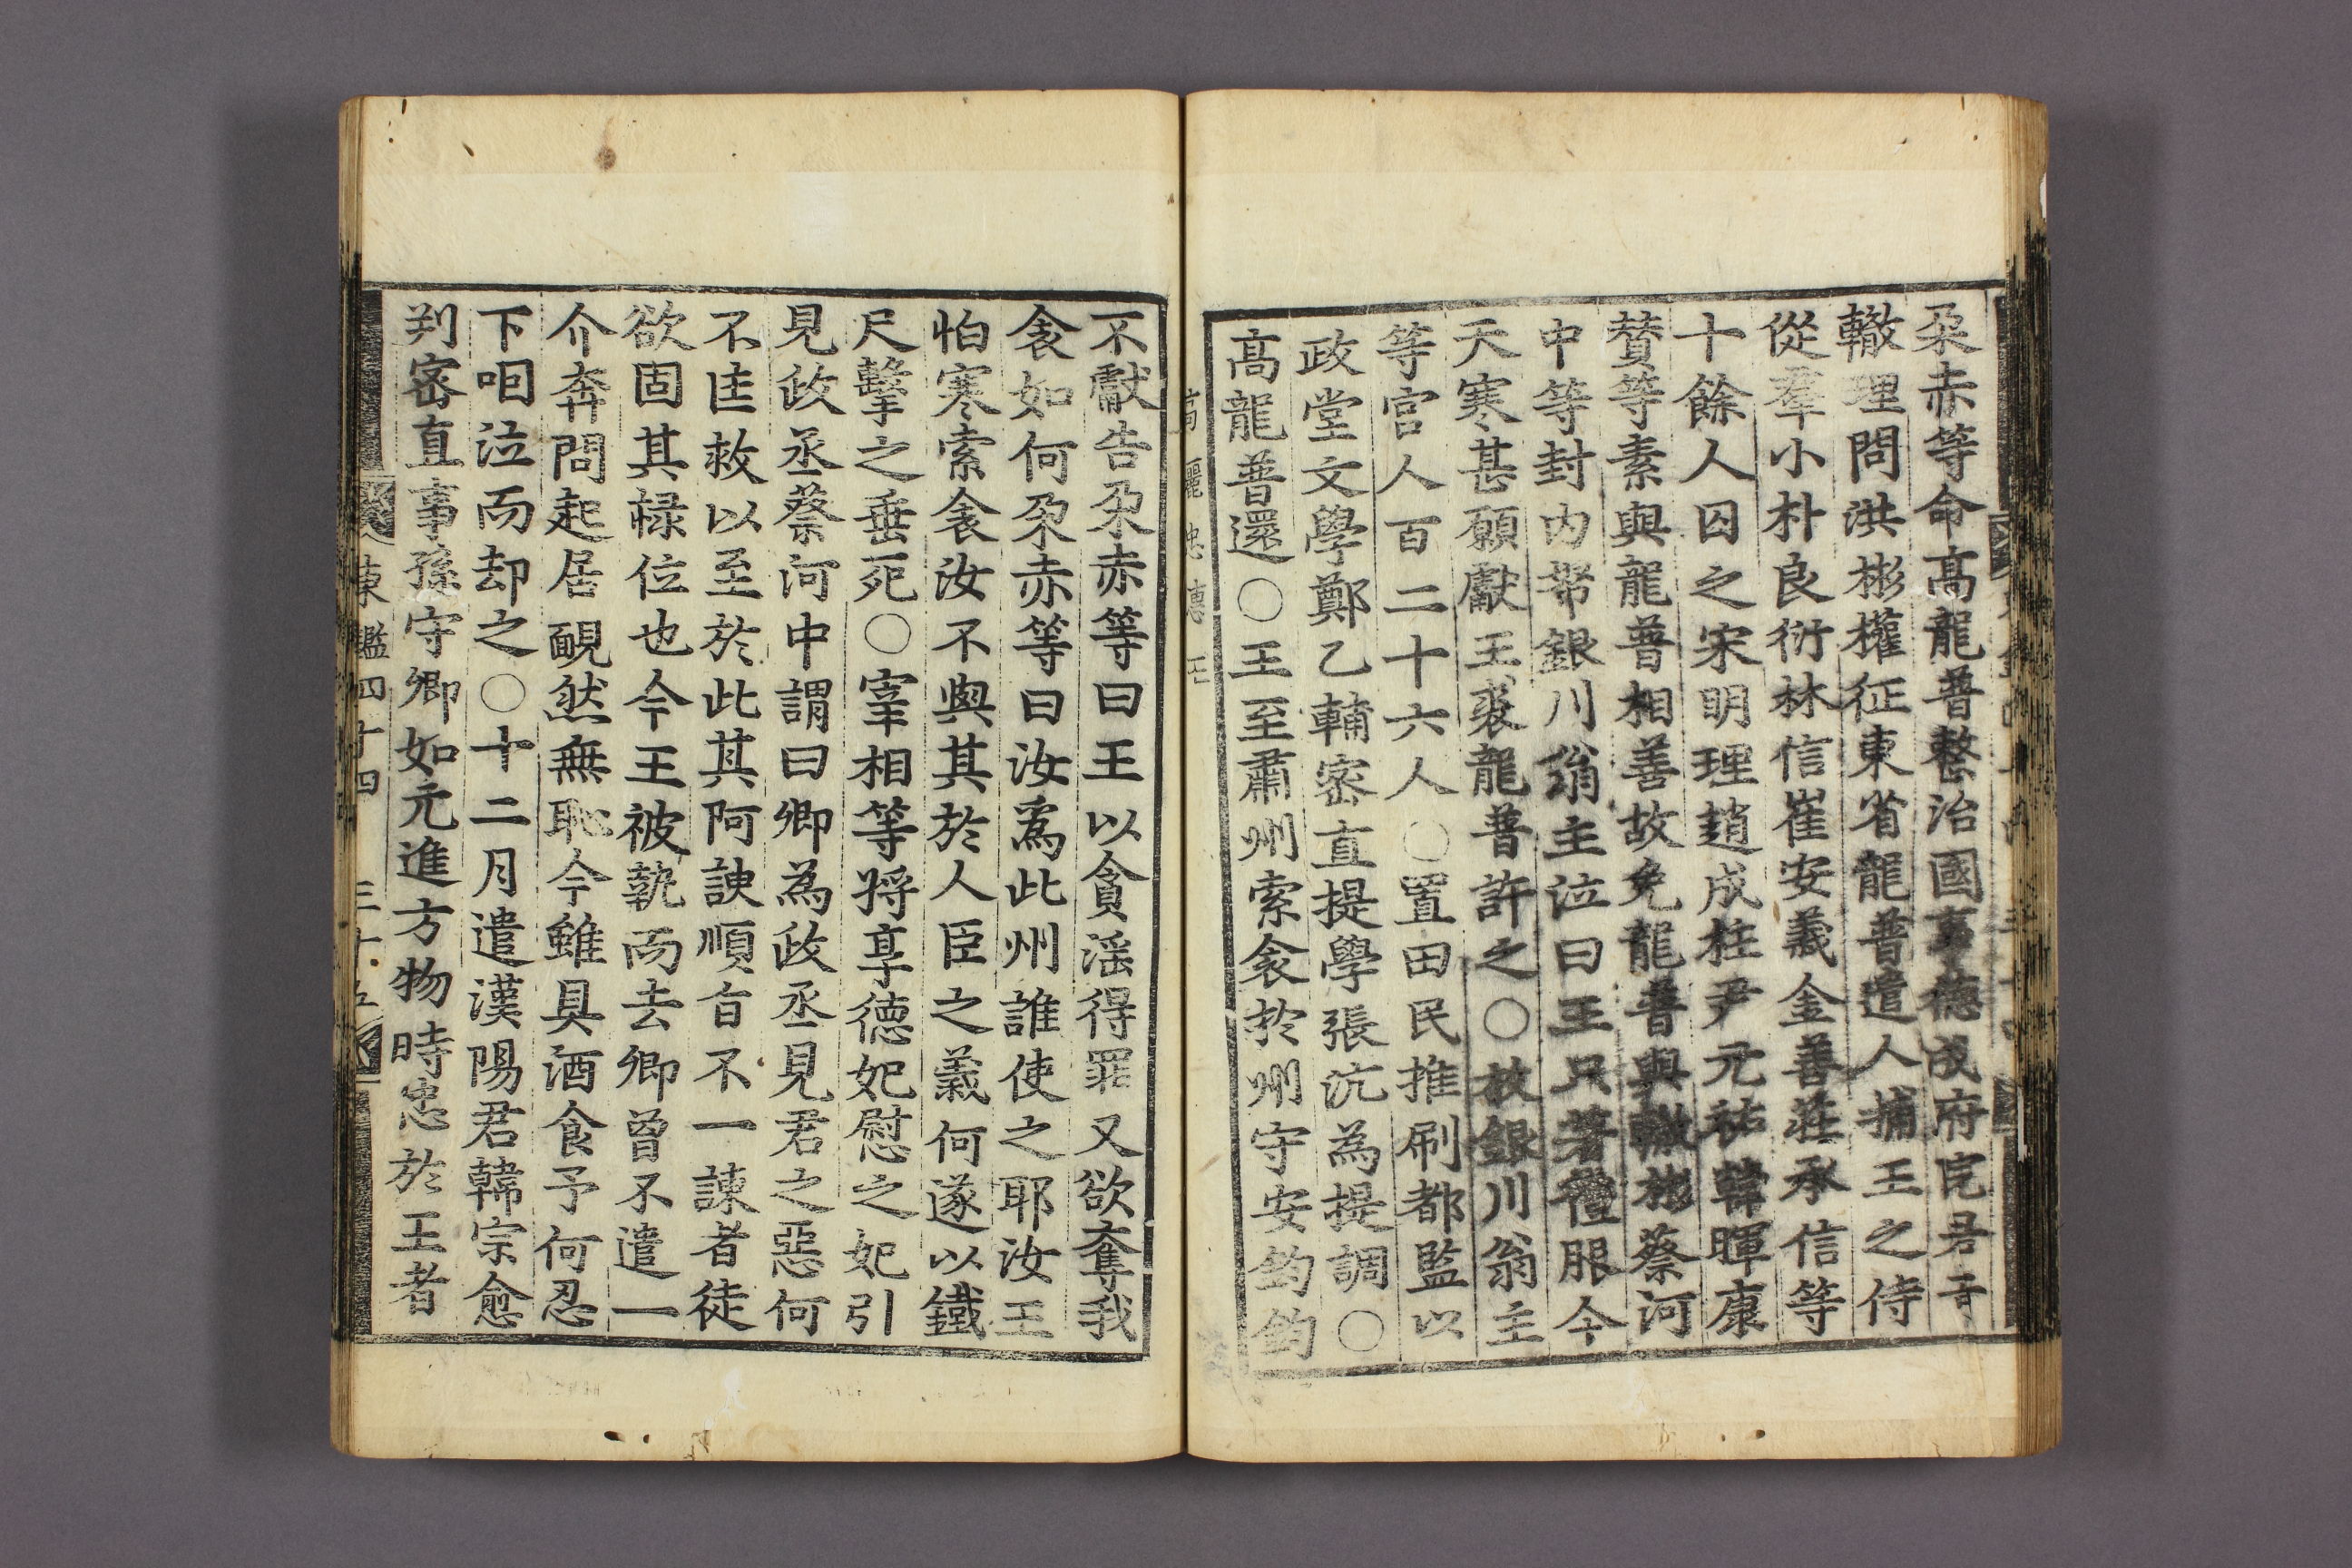 朶赤等命高龍普整治國事德成府院君奇
轍理問洪彬權征東省龍普遣人捕王之侍
從羣小朴良衍林信崔安義金善莊承信等
十餘人囚之宋明理趙成柱尹元祐韓暉康
贊等素與龍普相善故免龍普與轍彬蔡河
中等封內帑銀川翁主泣曰王只著禮服今
天寒甚願獻王裘龍普許之○放銀川翁主
等宮人百二十六人○置田民推刷都監以
政堂文學鄭乙輔密直提學張沆為提調○
高龍普還○王至肅州索衾於州守安鈞鈞
高麗忠惠王
不獻告朶赤等曰王以貪滛得罪又欲奪我
衾如何朶赤等曰汝爲此州誰使之耶汝王
怕寒索衾汝不與其於人臣之義何遂以鐵
尺擊之垂死○宰相等將享德妃慰之妃引
見政丞蔡河中謂曰卿為政丞見君之惡何
不匡救以至於此其阿諛順旨不一諫者徒
欲固其祿位也今王被執而去卿曾不遣一
介奔問起居靦然無恥今雖具酒食予何忍
下咽泣而却之○十二月遣漢陽君韓宗愈
判密直事孫守卿如元進方物時忠於王者
東鑑四十四 三十五